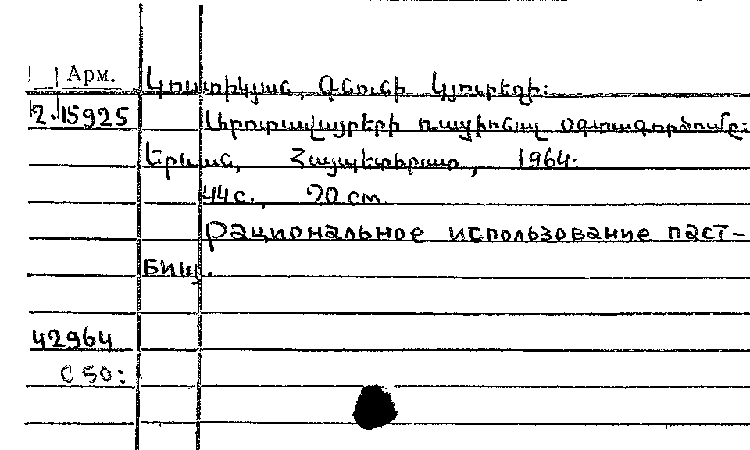 Арм.
Կոստիկյան, Գնունի Կյուրեղի:
2.15925
Արոտավայրերի ռացիոնալ օգտագործումը:
Երևան, Հայպետհրատ, 1964.
44 с., 20 cm.
Рациональное использование паст-
бищ.
42964
С 50: